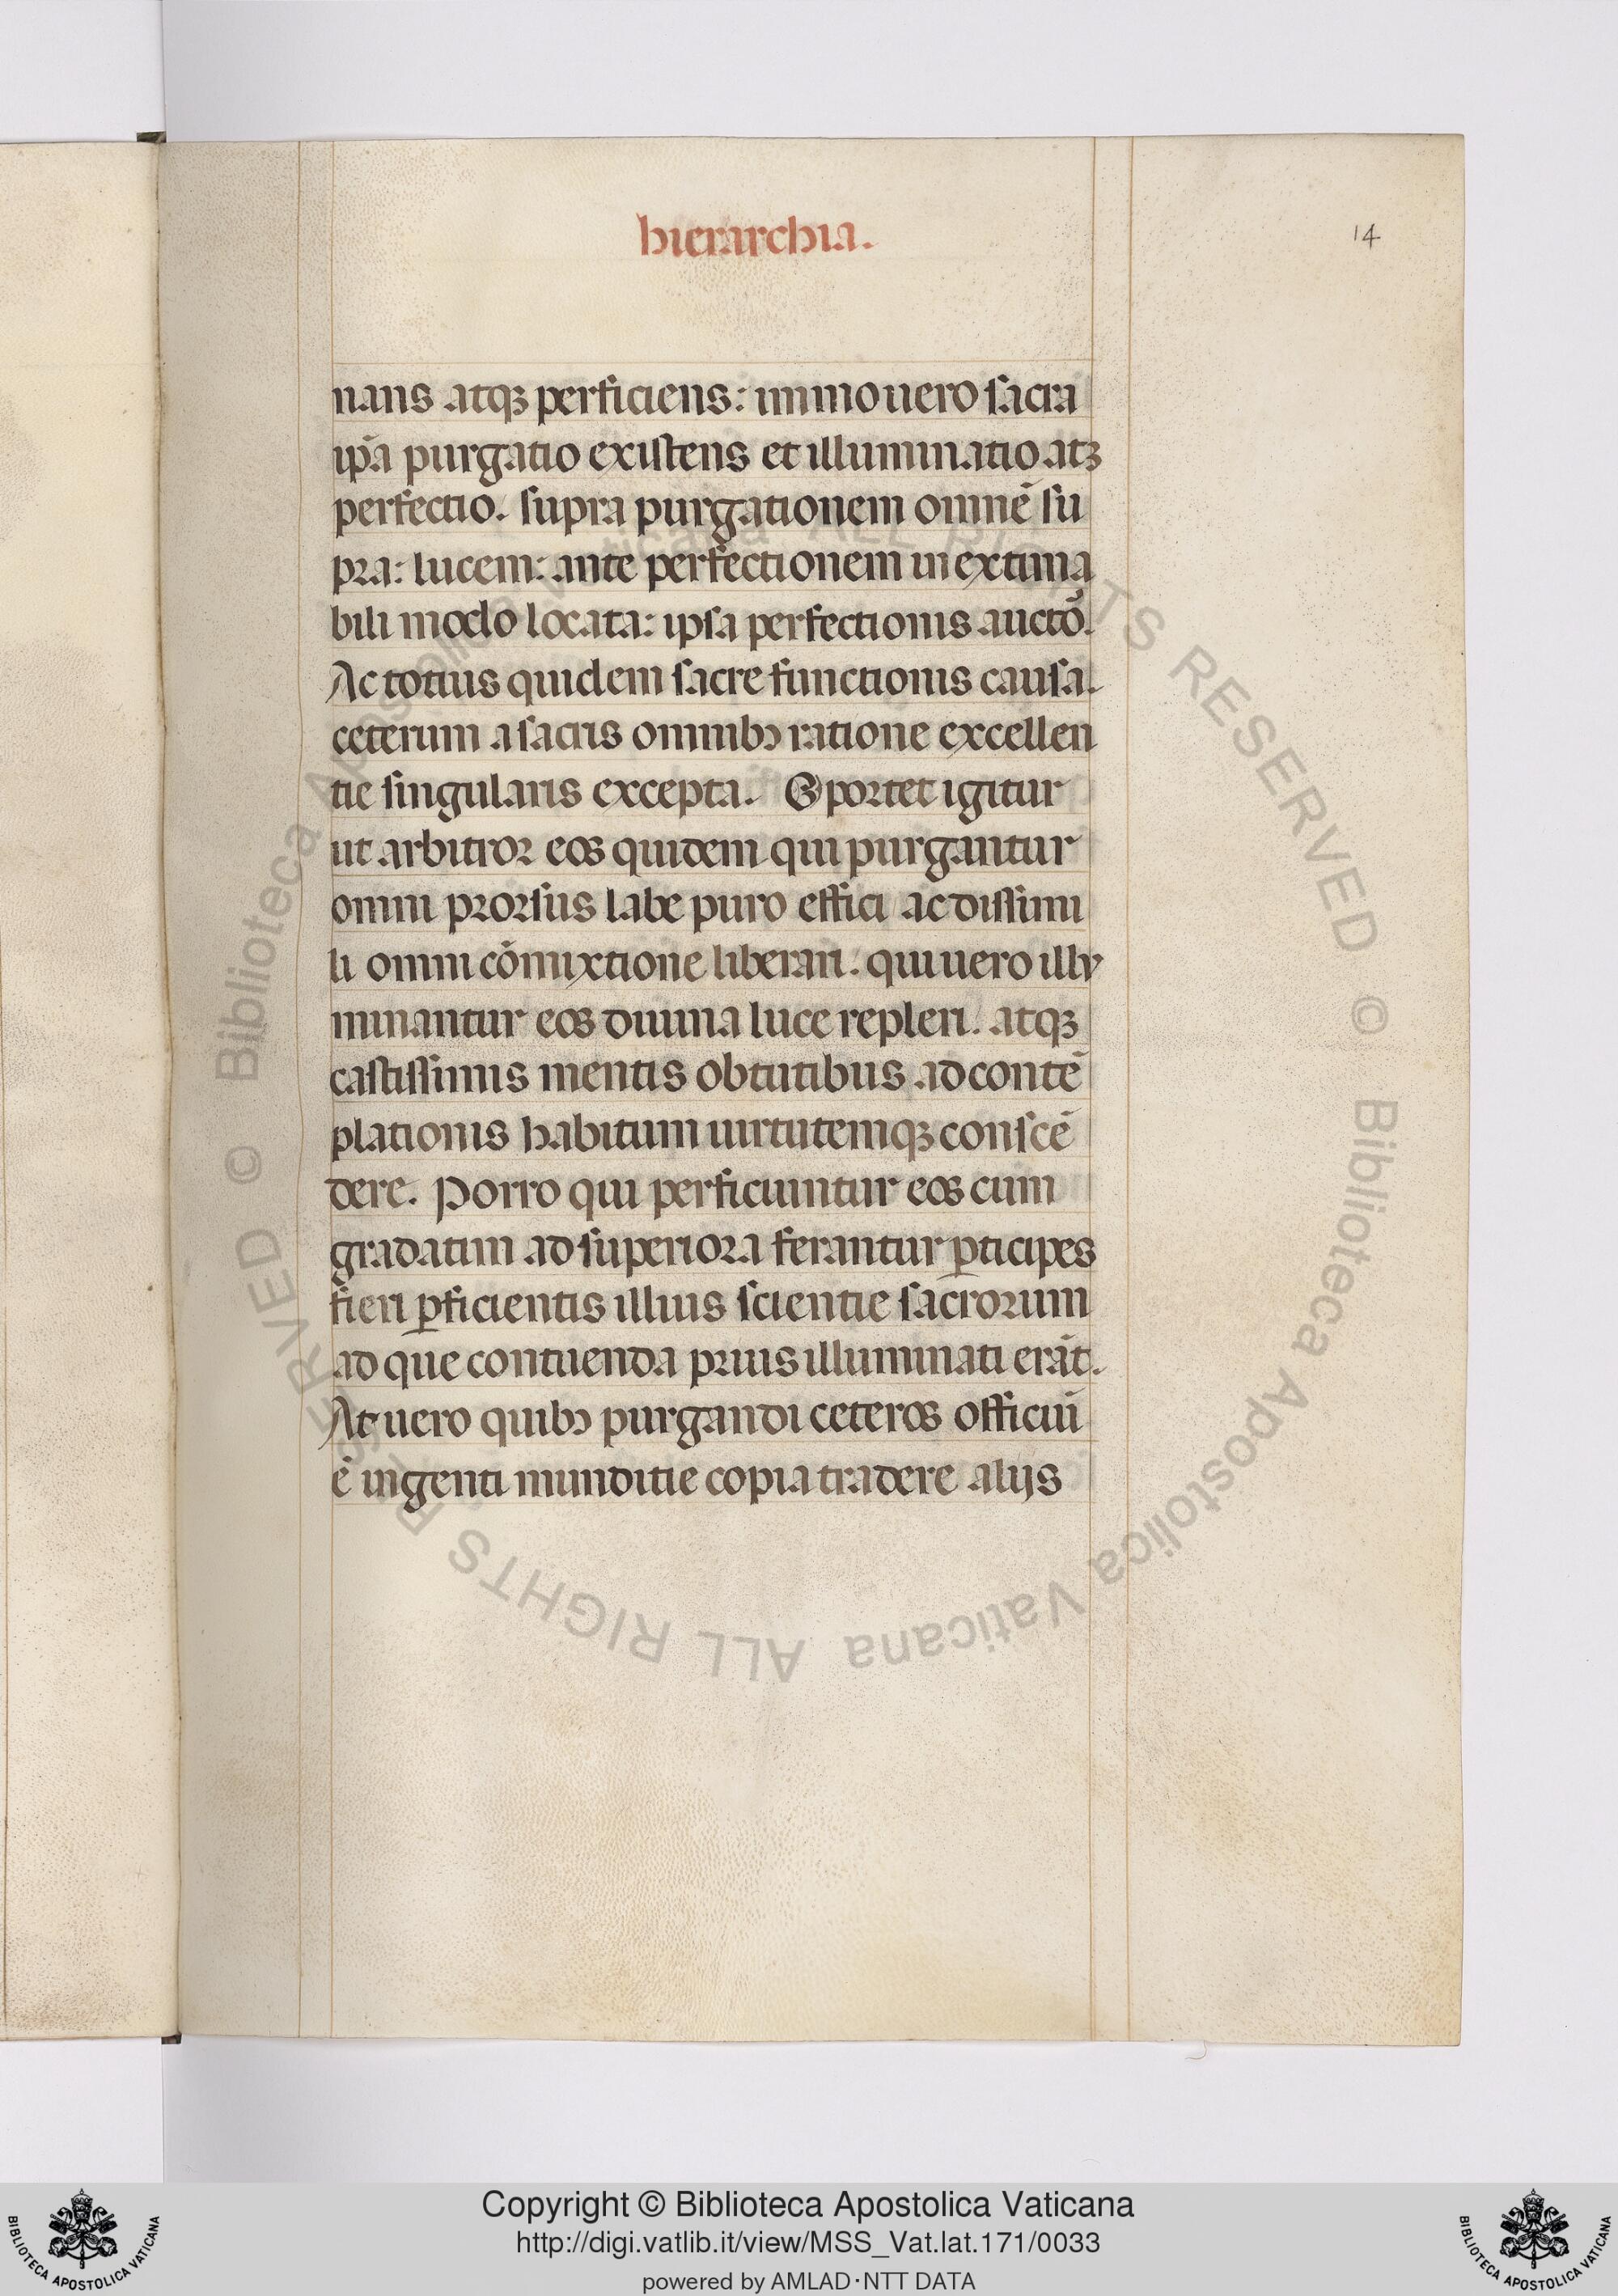 hierarchia.
14
nans atqꝫ perficiens: immo uero sacra
ip̄a purgatio existens et illuminatio atꝫ
perfectio. supra purgationem omnē su
pra: lucem: ante perfectionem in extima
bili modo locata: ipsa perfectionis auctō.
Ac totius quidem sacre functionis causa.
ceterum a sacris omnibꝰ ratione excellen
tie singularis excepta. Oportet igitur
ut arbitror eos quidem qui purgantur
omni prorsus labe puro effici ac dissimi
li omni cōmixtione liberari. qui uero illu
minantur eos diuina luce repleri. atqꝫ
castissimis mentis obtutibus ad contē
plationis habitum uirtutemqꝫ conscē
dere. Porro qui perficiuntur eos cum
gradatim ad superiora ferantur ꝑticipes
fieri ꝑficientis illius scientie sacrorum
ad que contuenda prius illuminati erāt.
At uero quibꝰ purgandi ceteros officiū
ē ingenti munditie copia tradere alijs
© Biblioteca Apostolica Vaticana ALL RIGHTS RESERVED © Biblioteca Apostolica Vaticana ALL RIGHTS RESERVED
Copyright © Biblioteca Apostolica Vaticana
http://digi.vatlib.it/view/MSS_Vat.lat.171/0033
powered by AMLAD·NTT DATA
BIBLIOTECA APOSTOLICA VATICANA
BIBLIOTECA APOSTOLICA VATICANA